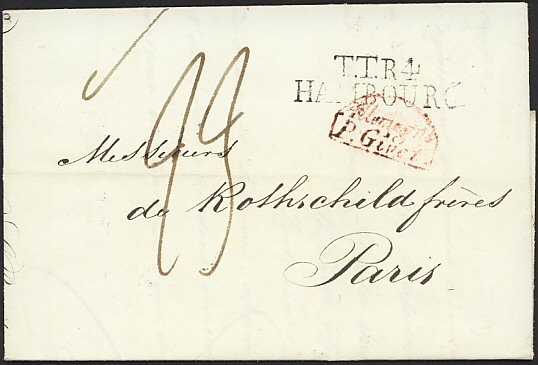 T.T.R.4.
HAMBOURG
Allemagne
P. Givet
Messieurs
de Rothschild frères
Paris